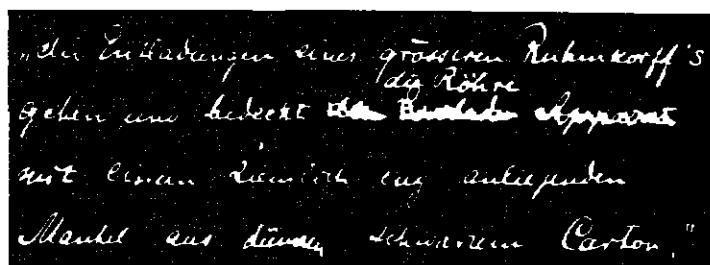 „die Entladungen eines grösseren Ruhmkorff's
die Röhre
gehen und bedeckt Apparat
mit einem ziemlich eng anliegenden
Mantel aus dünnem schwarzem Carton."